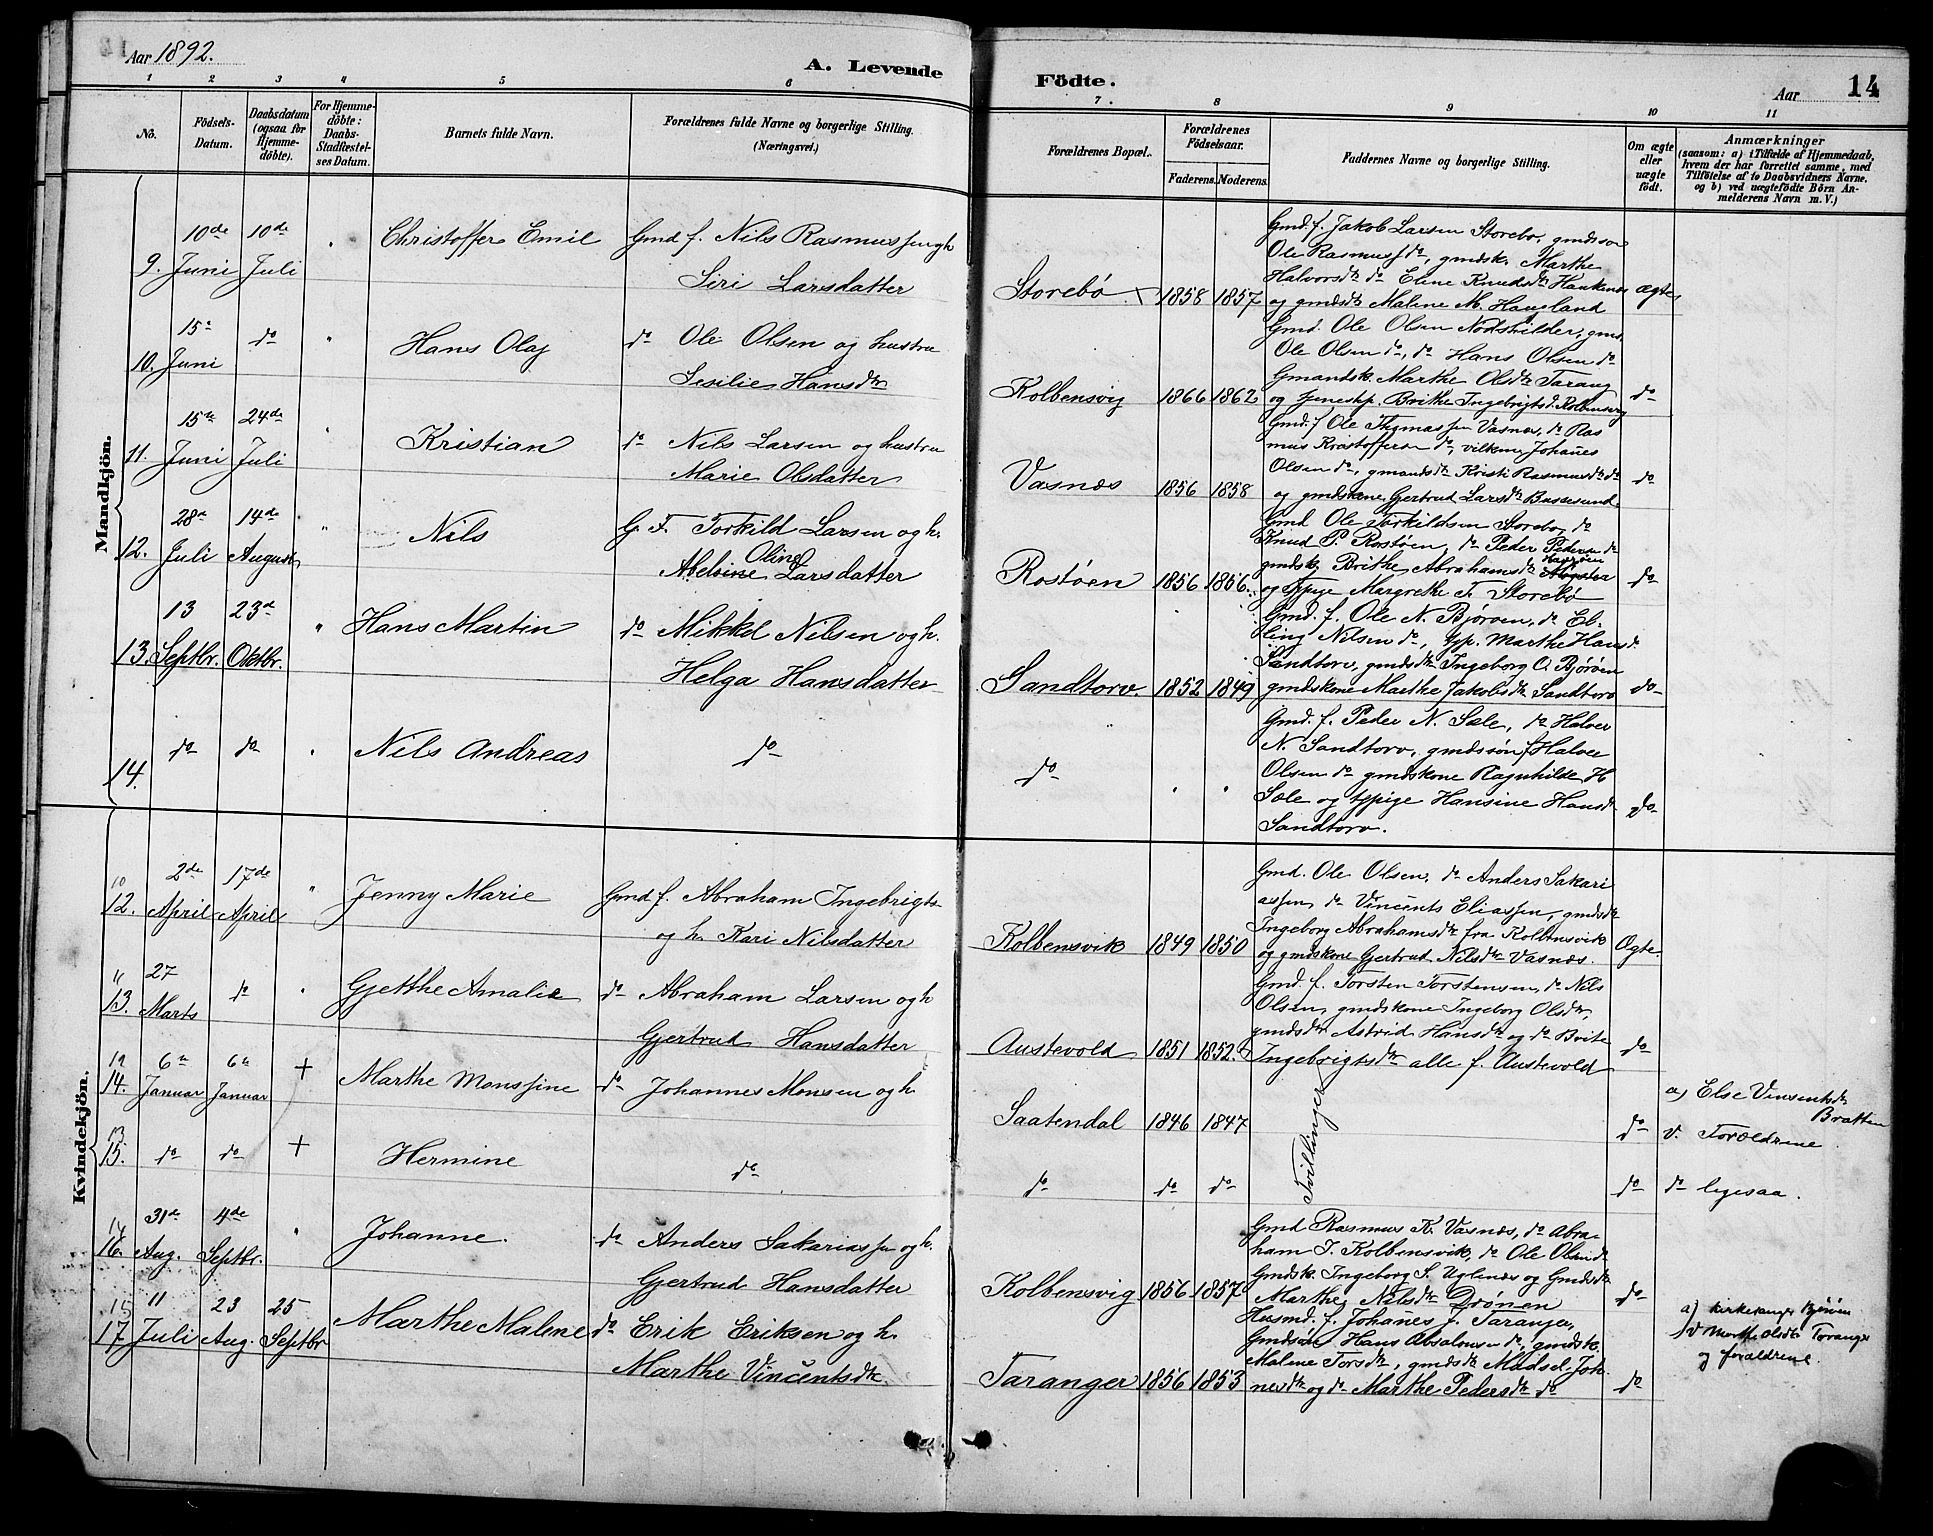 Aar 1892.
A. Levende
Födte.
Aar
14
1 2 3 4 5 6 7. 8 9 10 11
No.
Födsels-
Datum.
Daabsdatum
(ogsaa for
Hjemme-
döbte).
For Hjemme-
döbte:
Daabs-
Stadfæstel-
ses Datum.
Barnets fulde Navn.
Forældrenes fulde Navne og borgerlige Stilling.
(Næringsvei.)
Forældrenes Bopæl.
Forældrenes
Födselsaar.
Faderens. Moderens.
Faddernes Navne og borgerlige Stilling.
Om ægte
eller
uægte
födt.
Anmærkninger
(saasom: a) i Tilfælde af Hjemmedaab,
hvem der har forrettet samme, med
Tilföielse af to Daabsvidners Navne.
og b) ved uægtefödte Börn An-
melderens Navn m. V.)
Mandkjön.
9. 10de Juni 10de Juli
Christoffer Emil
Gmd f. Nils Rasmussen og h
Siri Larsdatter
Storebö 1858 1857
Gmd. f. Jakob Larsen Storebø, gmdssøn
Ole Rasmuss do, gmdsk. Marthe
Halvorsdtr do Elene Knudsdtr Haukenæs
og gmdsdtr Malene M. Haugland
ægte
10. 15 Juni do
Hans Olaj
do Ole Olsen og hustru
Sesilie Hansdtr
Kolbensvig 1866 1862
Gmd. Ole Olsen Nodskilder, gmd.
Ole Olsen do, do Hans Olsen do
Gmandsk. Marthe Olsdtr Tarang
og tjenestp. Brithe Ingebrigtsd. Kolbensvig
do
11. 15de Juni 24de Juli
Kristian
do Nils Larsen og hustru
Marie Olsdatter
Vasnæs 1856 1858
Gmd. f Ole Thomassen Vasnæs, do Ras
mus Kristoffersen do, Johanes
Olsen do, gmandsdtr Kristi Rasmusdtr do
og gmdskone Gjertrud Larsdtr Bassesund
do
12. 28de Juli 14de August
Nils
G. F. Torkild Larsen og h.
Oline
Larsdatter
Rostøen 1856 1856
Gmd Ole Torkildsen Storebø, do
Knud P. Rostøen, do Peder Pedersen do
gmdsk Brithe Abrahamsdtr
og Tjpige Margrethe T. Storebø
do
13. 13 Septbr. 23de Oktbr.
Hans Martin
do Mikkel Nilsen og h.
Helga Hansdatter
Sandtorv. 1852 1849
Gmd. f. Ole N. Bjørøen, do El-
ling Nilsen do, tjp. Marthe Hansd.
Sandtorv, gmdsdtr Ingeborg O. Bjørøen
gmdskone Marthe Jakobsdtr Sandtorv
do
14. do do
Nils Andreas
do
do
Gmd. f. Peder N. Sæle, do Halvor
N. Sandtorv, gmdssøn Halvor
Olsen do gmdskone Ragnhilde H
Sæle og tjpige Hansine Hansdtr
Sandtorv.
do
Kvindekjön.
10
12. 2de April 17de April
Jenny Marie
Gmd f. Abraham Ingebrigts
og h. Kari Nilsdatter
Kolbensvik 1849 1850
Gmd. Ole Olsen, do Anders Sakari
assen, do Vincents Eliassen, gmdsdtr
Ingeborg Abrahamsdtr fra Kolbensvik
og gmdskone Gjertrud Nilsdtr Vasnæs.
Ægte.
11
13. 27 Marts do
Gjetthe Amalie
do Abraham Larsen og h
Gjertrud Hansdatter
Austevold 1851 1852
Gmd. f. Torsten Torstensen, do Nils
Olsen, gmdskone Ingeborg Olsdtr,
gmdsdtr Astrid Hansdtr og do Brite
Ingebrigtsdtr alle f. Austevold
do
12
14. 6te Januar 6te Januar +
Marthe Monssine
do Johannes Monsen og h.
Saatendal 1846 1847
Tvillinger
do
a) Else Vinsentsdtr
Bratten
v. Forældrene
13
15. do do +
Hermine
do
do do do do
do ligesaa.
14
16. 31de Aug. 4de Septbr.
Johanne.
do Anders Sakariassen og h.
Gjertrud Hansdatter
Kolbensvig 1856 1857
Gmd Rasmus K. Vasnæs, do Abra-
ham I. Kolbensvik, do Ole Olsen do
Gmdsk. Ingeborg S. Uglenæs og Gmdsdtr
Marthe Nilsdtr Drönen
do
15
17 11 Juli 23 Aug. 25 Septbr
Marthe Malene
do Erik Eriksen og h.
Marthe Vincentsdtr.
Taranger 1856 1853
Husmd. f. Johanes J. Taranger,
Gmdssøn Hans Absalonsen do, gmdsk.
Malene Torsdtr, gmdsdtr Madsel Joh-
nesdtr og do Marthe Pedersdtr do
do
a) kirkesanger Bjørøen
v Marthe Olsdtr Taranger
og forældrene.